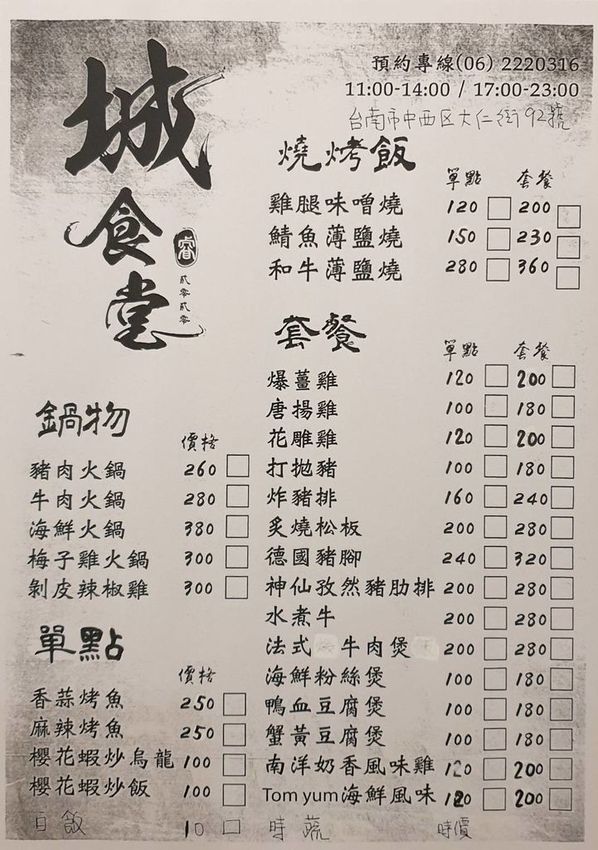 城食堂
睿
貳零貳零
預約專線(06) 2220316
11:00-14:00 / 17:00-23:00
台南市中西区大仁街92號
燒烤飯
單點 套餐
雞腿味噌燒 120 200
鯖魚薄鹽燒 150 230
和牛薄鹽燒 280 360
套餐
單點 套餐
爆薑雞 120 200
唐揚雞 100 180
花雕雞 120 200
打拋豬 100 180
炸豬排 160 240
炙燒松板 200 280
德國豬腳 240 320
神仙孜然豬肋排 200 280
水煮牛 200 280
法式牛肉煲 200 280
海鮮粉絲煲 100 180
鴨血豆腐煲 100 180
蟹黃豆腐煲 100 180
南洋奶香風味雞 120 200
Tom yum海鮮風味 120 200
時蔬 時價
鍋物
價格
豬肉火鍋 260
牛肉火鍋 280
海鮮火鍋 380
梅子雞火鍋 300
剝皮辣椒雞 300
單點
價格
香蒜烤魚 250
麻辣烤魚 250
櫻花蝦炒烏龍 100
櫻花蝦炒飯 100
白飯 10